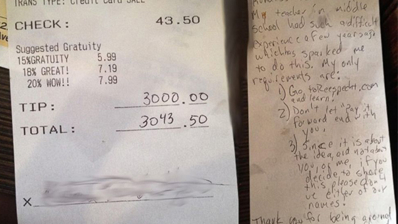 TRANS TYPE: Credit Card SALE
CHECK: 43.50
Suggested Gratuity
15%GRATUITY 5.99
18% GREAT! 7.19
20% WOW!! 7.99
TIP: 3000.00
TOTAL: 3043.50
X
My teacher in middle
school had such a difficult
experience a few years ago
which sparked me
to do this. My only
requirements are:
1) Go to Reesspecht.com
and learn.
2) Don't let "Pay it
Forward end with
you.
3) Since it is about
the idea, and not about
you, or me, if you
decide to share
this, please don't
use either of our
names!
Thank you for being around